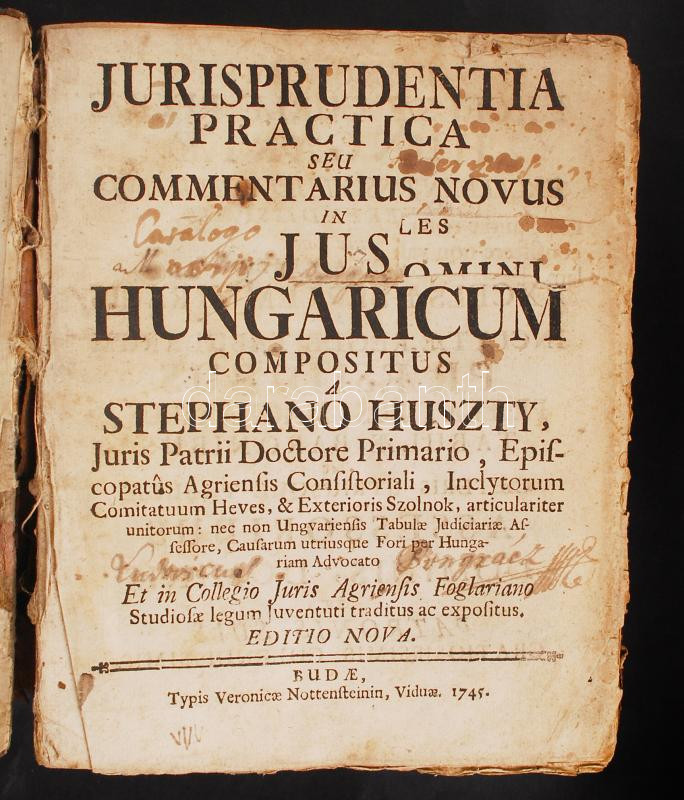 JURISPRUDENTIA
PRACTICA
SEU
COMMENTARIUS NOVUS
IN
LES
Catalogo
JUS
OMINI
HUNGARICUM
COMPOSITUS
A
darabanth
STEPHANO HUSZTY,
Juris Patrii Doctore Primario, Epiſ-
copatûs Agrienſis Conſiſtoriali, Inclytorum
Comitatuum Heves, & Exterioris Szolnok, articulariter
unitorum: nec non Ungvarienſis Tabulæ Judiciariæ Aſ-
ſeſſore, Cauſarum utriusque Fori per Hunga-
riam Advocato
Ludovicus Bongracz
Et in Collegio Juris Agrienſis Foglariano
Studioſæ legum Juventuti traditus ac expoſitus.
EDITIO NOVA.
BUDÆ,
Typis Veronicæ Nottenſteinin, Viduæ. 1745.